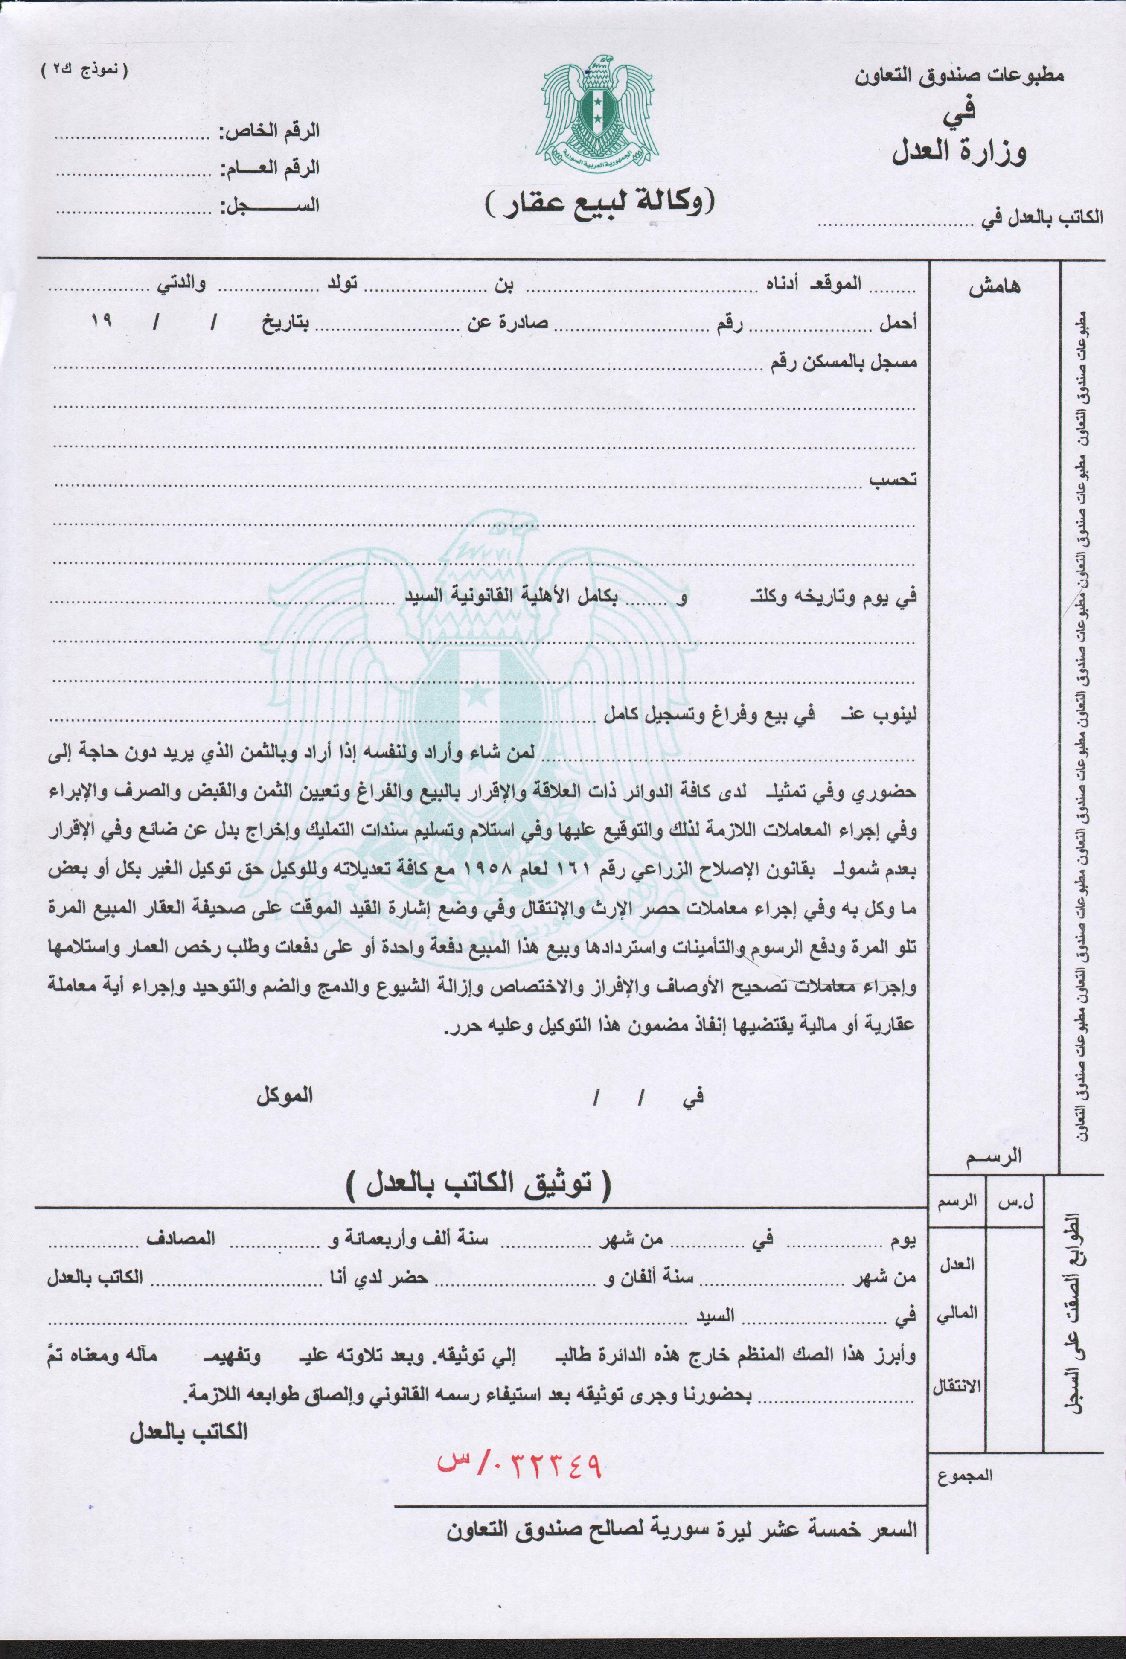 مطبوعات صندوق التعاون
في
وزارة العدل
الكاتب بالعدل في ............................
الجمهورية العربية السورية
(وكالة لبيع عقار )
( نموذج ك٢ )
الرقم الخاص: ............................
الرقم العـــام: ............................
الســـــــجل: ............................
هامش
........ الموقعـ أدناه ........................................ بن ...................... تولد .................. والدتي ..................
أحمل ...................... رقم ............................ صادرة عن .......................... بتاريخ / / ١٩
مسجل بالمسكن رقم ....................................................................................
تحسب ....................................................................................
في يوم وتاريخه وكلتـ و ....... بكامل الأهلية القانونية السيد ............................................................
لينوب عنـ في بيع وفراغ وتسجيل كامل ....................................................................................
.................................................................. لمن شاء وأراد ولنفسه إذا أراد وبالثمن الذي يريد دون حاجة إلى
حضوري وفي تمثيلـ لدى كافة الدوائر ذات العلاقة والإقرار بالبيع والفراغ وتعيين الثمن والقبض والصرف والإبراء
وفي إجراء المعاملات اللازمة لذلك والتوقيع عليها وفي استلام وتسليم سندات التمليك وإخراج بدل عن ضائع وفي الإقرار
بعدم شمولـ بقانون الإصلاح الزراعي رقم ١٦١ لعام ١٩٥٨ مع كافة تعديلاته وللوكيل حق توكيل الغير بكل أو بعض
ما وكل به وفي إجراء معاملات حصر الإرث والإنتقال وفي وضع إشارة القيد الموقت على صحيفة العقار المبيع المرة
تلو المرة ودفع الرسوم والتأمينات واستردادها وبيع هذا المبيع دفعة واحدة أو على دفعات وطلب رخص العمار واستلامها
وإجراء معاملات تصحيح الأوصاف والإفراز والاختصاص وإزالة الشيوع والدمج والضم والتوحيد وإجراء أية معاملة
عقارية أو مالية يقتضيها إنفاذ مضمون هذا التوكيل وعليه حرر.
في / / الموكل
مطبوعات صندوق التعاون مطبوعات صندوق التعاون مطبوعات صندوق التعاون مطبوعات صندوق التعاون مطبوعات صندوق التعاون مطبوعات صندوق التعاون
الرسـم
( توثيق الكاتب بالعدل )
يوم ................ في ............. من شهر ................ سنة ألف وأربعمائة و ................ المصادف ................
من شهر ........................ سنة ألفان و .......................... حضر لدي أنا ............................ الكاتب بالعدل
في .......................... السيد ....................................................................................
وأبرز هذا الصك المنظم خارج هذه الدائرة طالبـ إلي توثيقه. وبعد تلاوته عليـ وتفهيمـ مآله ومعناه تمَّ
............................ بحضورنا وجرى توثيقه بعد استيفاء رسمه القانوني وإلصاق طوابعه اللازمة.
الكاتب بالعدل
٠٣٢٣٤٩/ س
السعر خمسة عشر ليرة سورية لصالح صندوق التعاون
الرسم
ل.س
العدل
المالي
الانتقال
المجموع
الطوابع ألصقت على السجل